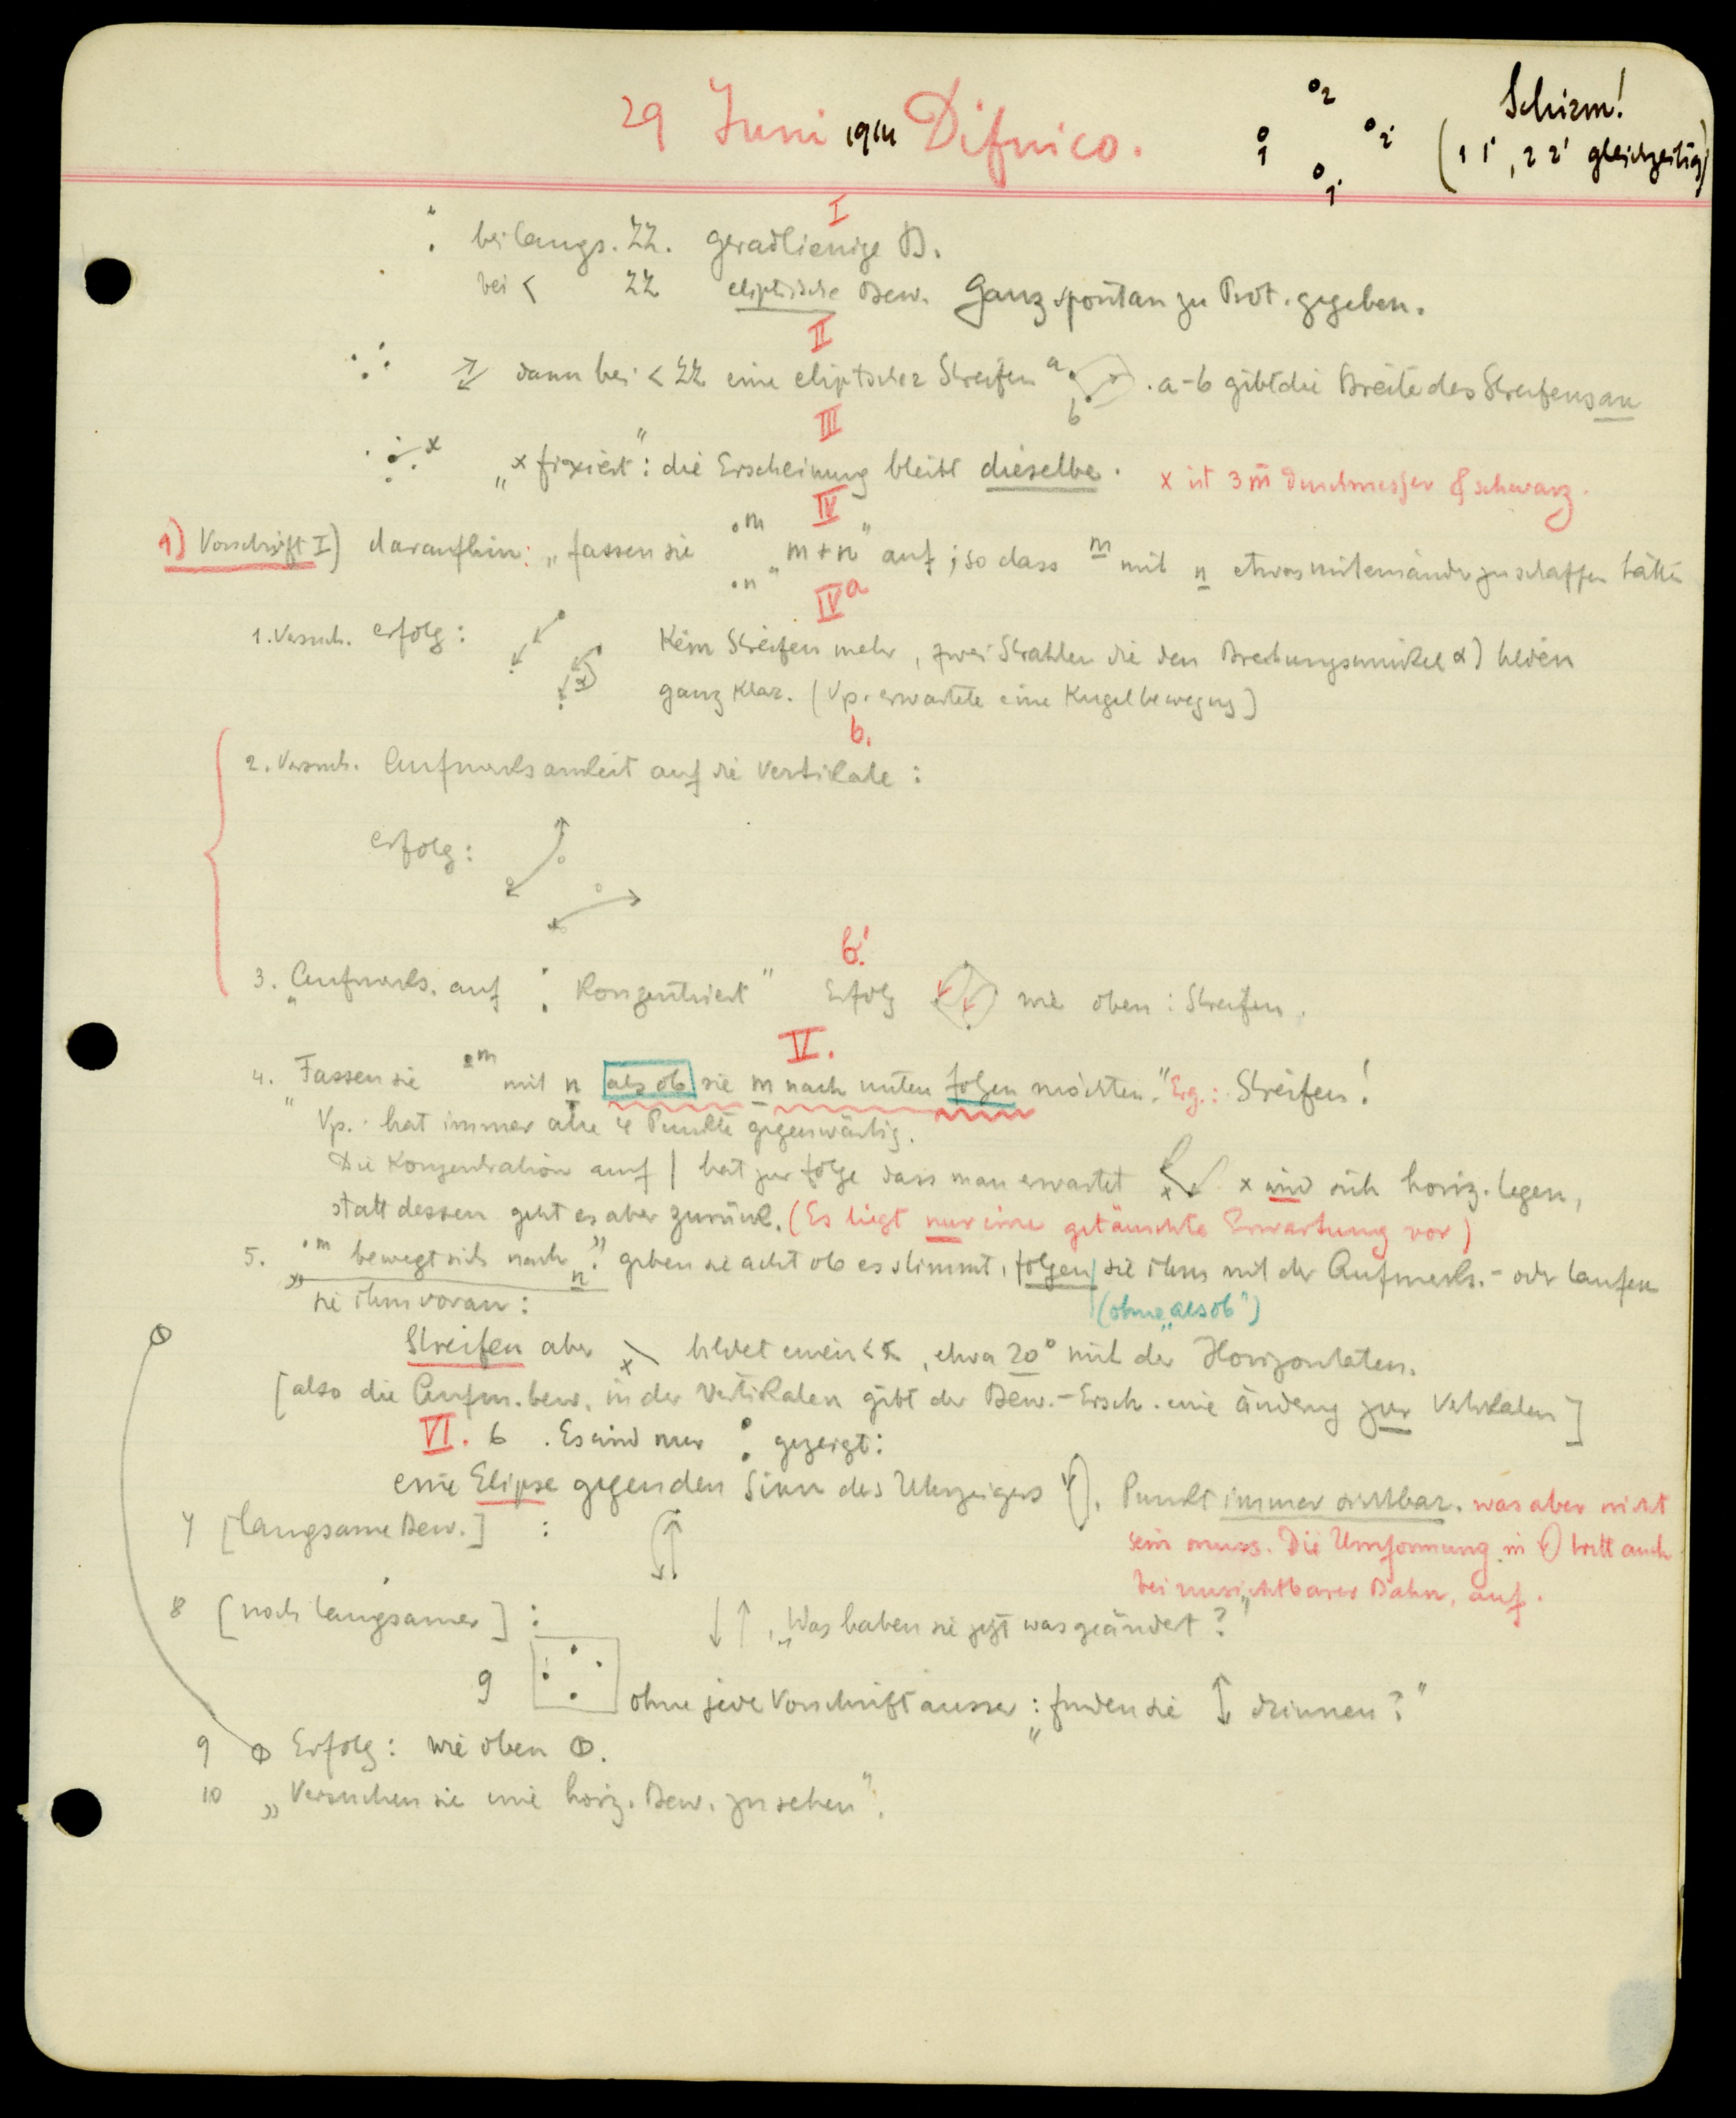 29 Juni 1914 Difnico.
o2
o1
o2'
o1'
Schirm!
(1 1', 2 2' gleichzeitig)
I
bei langs. ZZ. geradlienige B.
bei < ZZ eliptische Bew. Ganz spontan zu Prot. gegeben.
II
dann bei < ZZ eine eliptscher Streifen a b . a-b gibt die Breite des Streifens an
III
x „x fixiert": die Erscheinung bleibt dieselbe. x ist 3 m Durchmesser & schwarz.
IV
1) Vorschrift I) daraufhin: „fassen sie m n "m+n" auf; so dass m mit n etwas miteinander zu schaffen hätte
IVa
1. Versuch. erfolg: α Kein Streifen mehr, zwei Strahlen die den Brechungswinkel α) bilden
ganz klar. (Vp. erwartete eine Kugelbewegung)
b.
2. Versuch. Aufmerksamkeit auf die Vertikale:
erfolg:
b'.
3. „Aufmerks. auf : konzentriert" Erfolg wie oben: Streifen.
V.
4. „Fassen sie m mit n als ob sie m nach unten folgen möchten." Erg.: Streifen!
Vp. hat immer alle 4 Punkte gegenwärtig.
Die Konzentration auf | hat zur folge dass man erwartet x x wird sich horiz. legen,
statt dessen geht es aber zurück. (Es liegt nur eine getäuschte Erwartung vor)
5. „m bewegt sich nach n" geben sie acht ob es stimmt, folgen sie ihm mit der Aufmerks. - oder laufen
sie ihm voran: (ohne „als ob")
Streifen aber x bildet einen < , etwa 20° mit der Horizontalen.
[also die Aufm. bew. in der Vertikalen gibt der Bew.-Ersch. eine änderug zur Vertikalen]
VI. 6. Es sind nur : gezeigt:
eine Elipse gegen den Sinn des Uhrzeigers. Punkt immer sichtbar. was aber nicht
sein muss. Die Umformung in tritt auch
bei unsichtbarer Bahn, auf.
7 [langsame Bew.] :
8 [noch langsamer] : ↓↑, „Was haben sie jetzt was geändert?"
9 ohne jede Vorschrift ausser: „finden sie ↕ drinnen?"
9 Erfolg: wie oben Φ.
10 „Versuchen sie eine horiz. Bew. zu sehen".